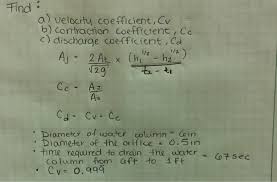 Find:
a) velocity coefficient, Cv
b) contraction coefficient, Cc
c) discharge coefficient, Cd
Aj = 2At/√2g × (h1^1/2 - h2^1/2)/(t2 - t1)
Cc = A2/A0
Cd = Cv - Cc
• Diameter of water column = 6in
• Diameter of the orifice = 0.5in
• time required to drain the water column from 6ft to 1ft = 67sec
• Cv = 0.999